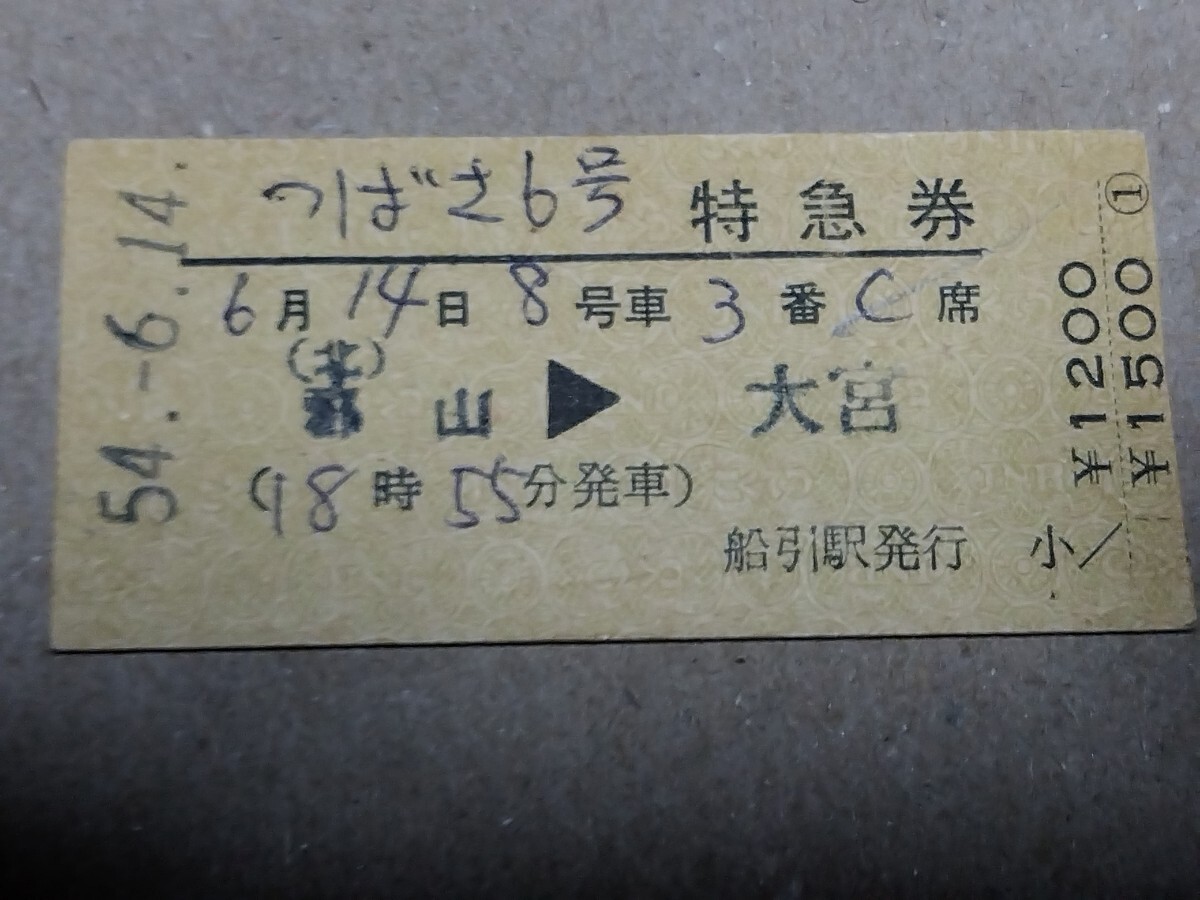 54.-6.14.
つばさ6号 特急券
6月14日8号車3番C席
(北)
山▶大宮
(18時55分発車)
船引駅発行 小/
¥1200
¥1500 ①